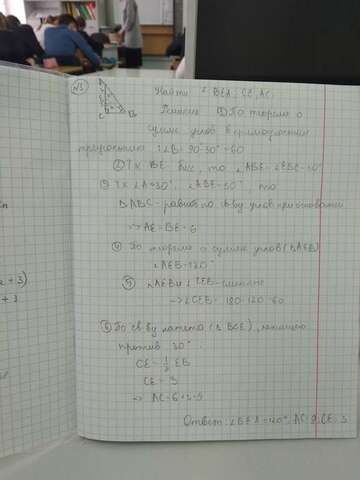 №3
A
E
C
B
Найти ∠BEA, CE, AC.
Решение ① По теореме о
сумме углов в прямоугольном
треугольнике: ∠B=90-30=60
② Тк BE- бис, то ∠ABE=∠EBC=30°
③ Тк ∠A=30°, ∠ABE=30°, то
ΔABC-равноб по св-ву углов при основании
=> AE=BE=6
④ По теореме о сумме углов (ΔAEB)
∠AEB=120°
⑤ ∠AEB и ∠CEB-смежные
=> ∠CEB=180-120=60
⑥ По св-ву катета (Δ BCE), лежащего
против 30°
CE=½EB
CE=3
=> AC=6+3=9
Ответ: ∠BEA=120°, AC=9, CE=3
+ 3)
+ 3